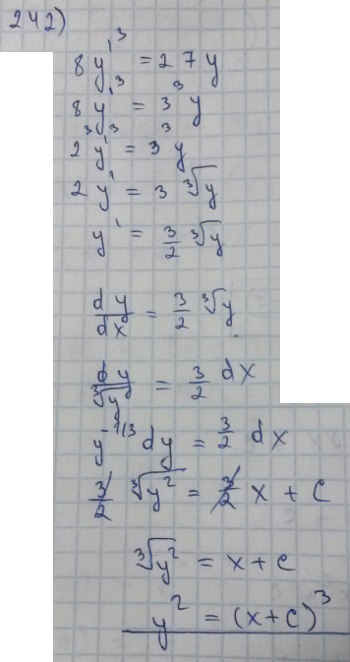 242)
8y'³ = 27y
8y'³ = 3³y
2³y'³ = 3³y
2y' = 3∛y
y' = 3/2 ∛y
dy/dx = 3/2 ∛y
dy/∛y = 3/2 dx
y^(-1/3) dy = 3/2 dx
3/2 ∛y² = 3/2 x + c
∛y² = x + c
y² = (x+c)³